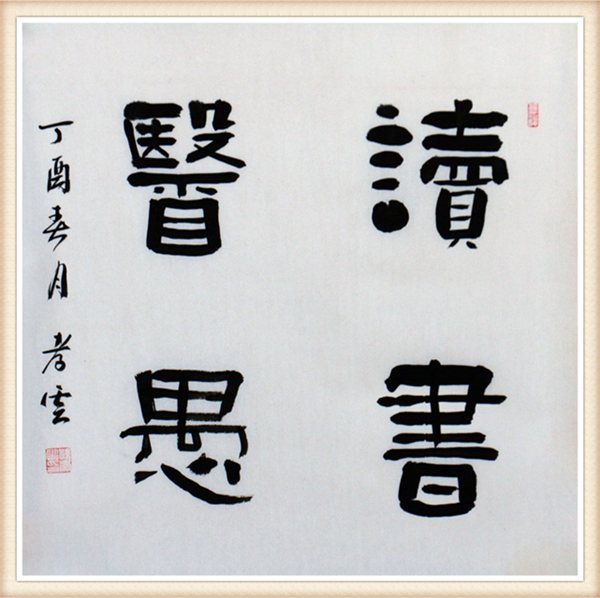 讀書
醫愚
丁酉春月 孝雲